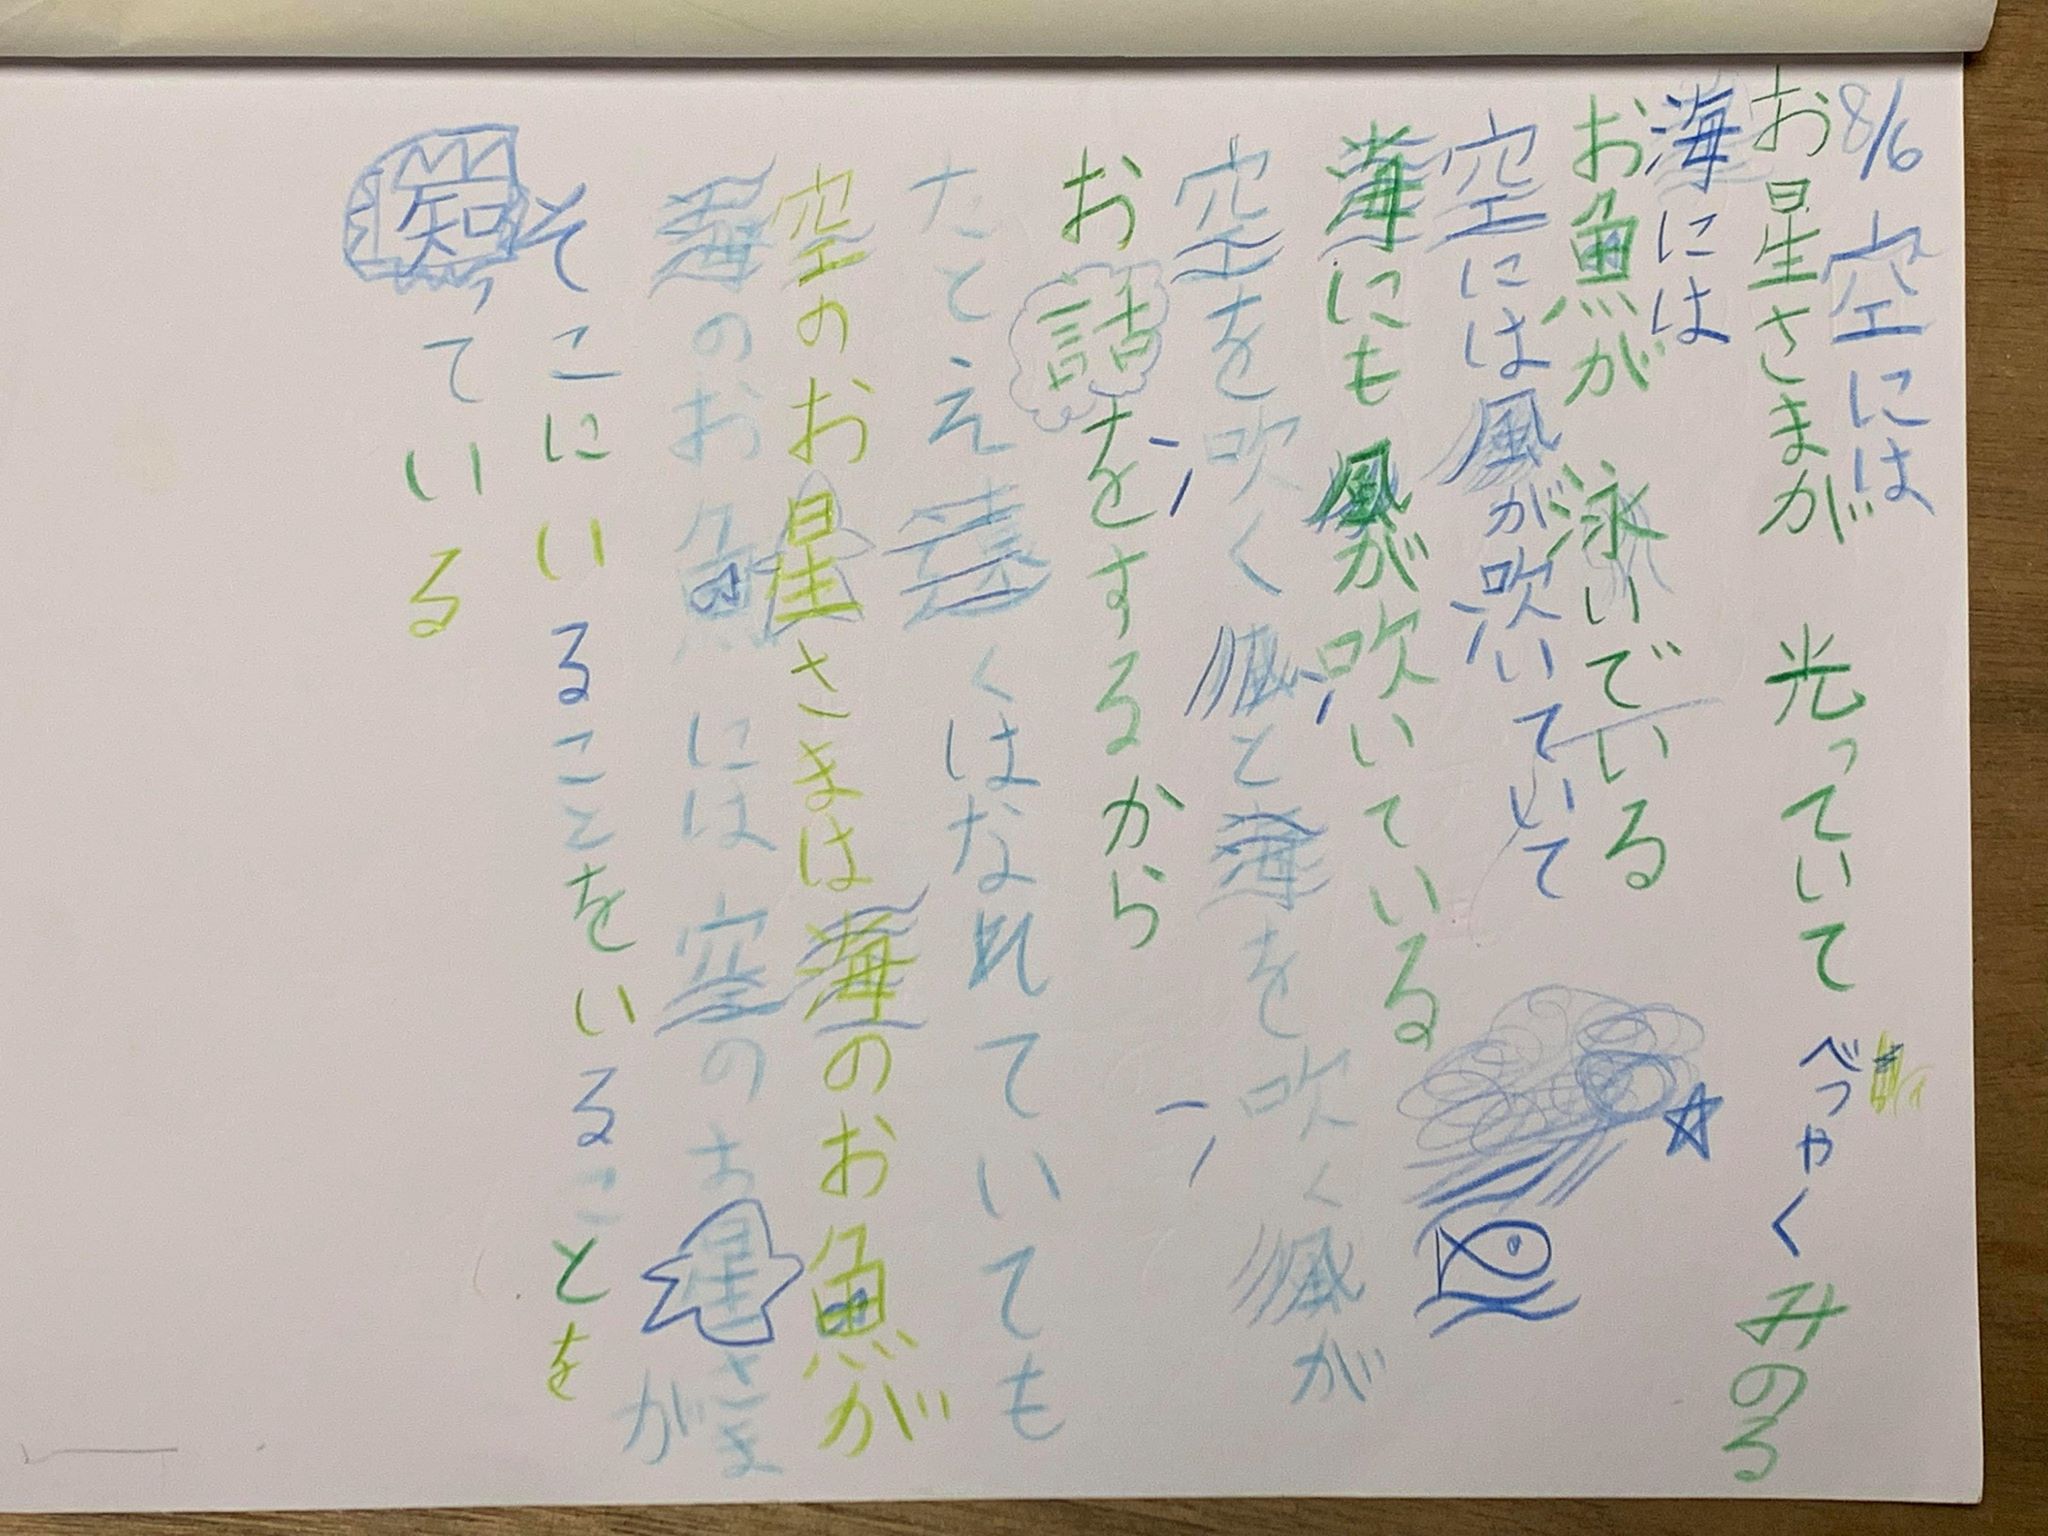 8/6 空には
お星さまが 光っていて
べつやくみのる
海には
お魚が 泳いでいる
空には風が吹いていて
海にも風が吹いている
空を吹く風と海を吹く風が
お話をするから
たとえ遠くはなれていても
空のお星さまは海のお魚が
海のお魚には空のお星さまが
そこにいることをいることを
知っている